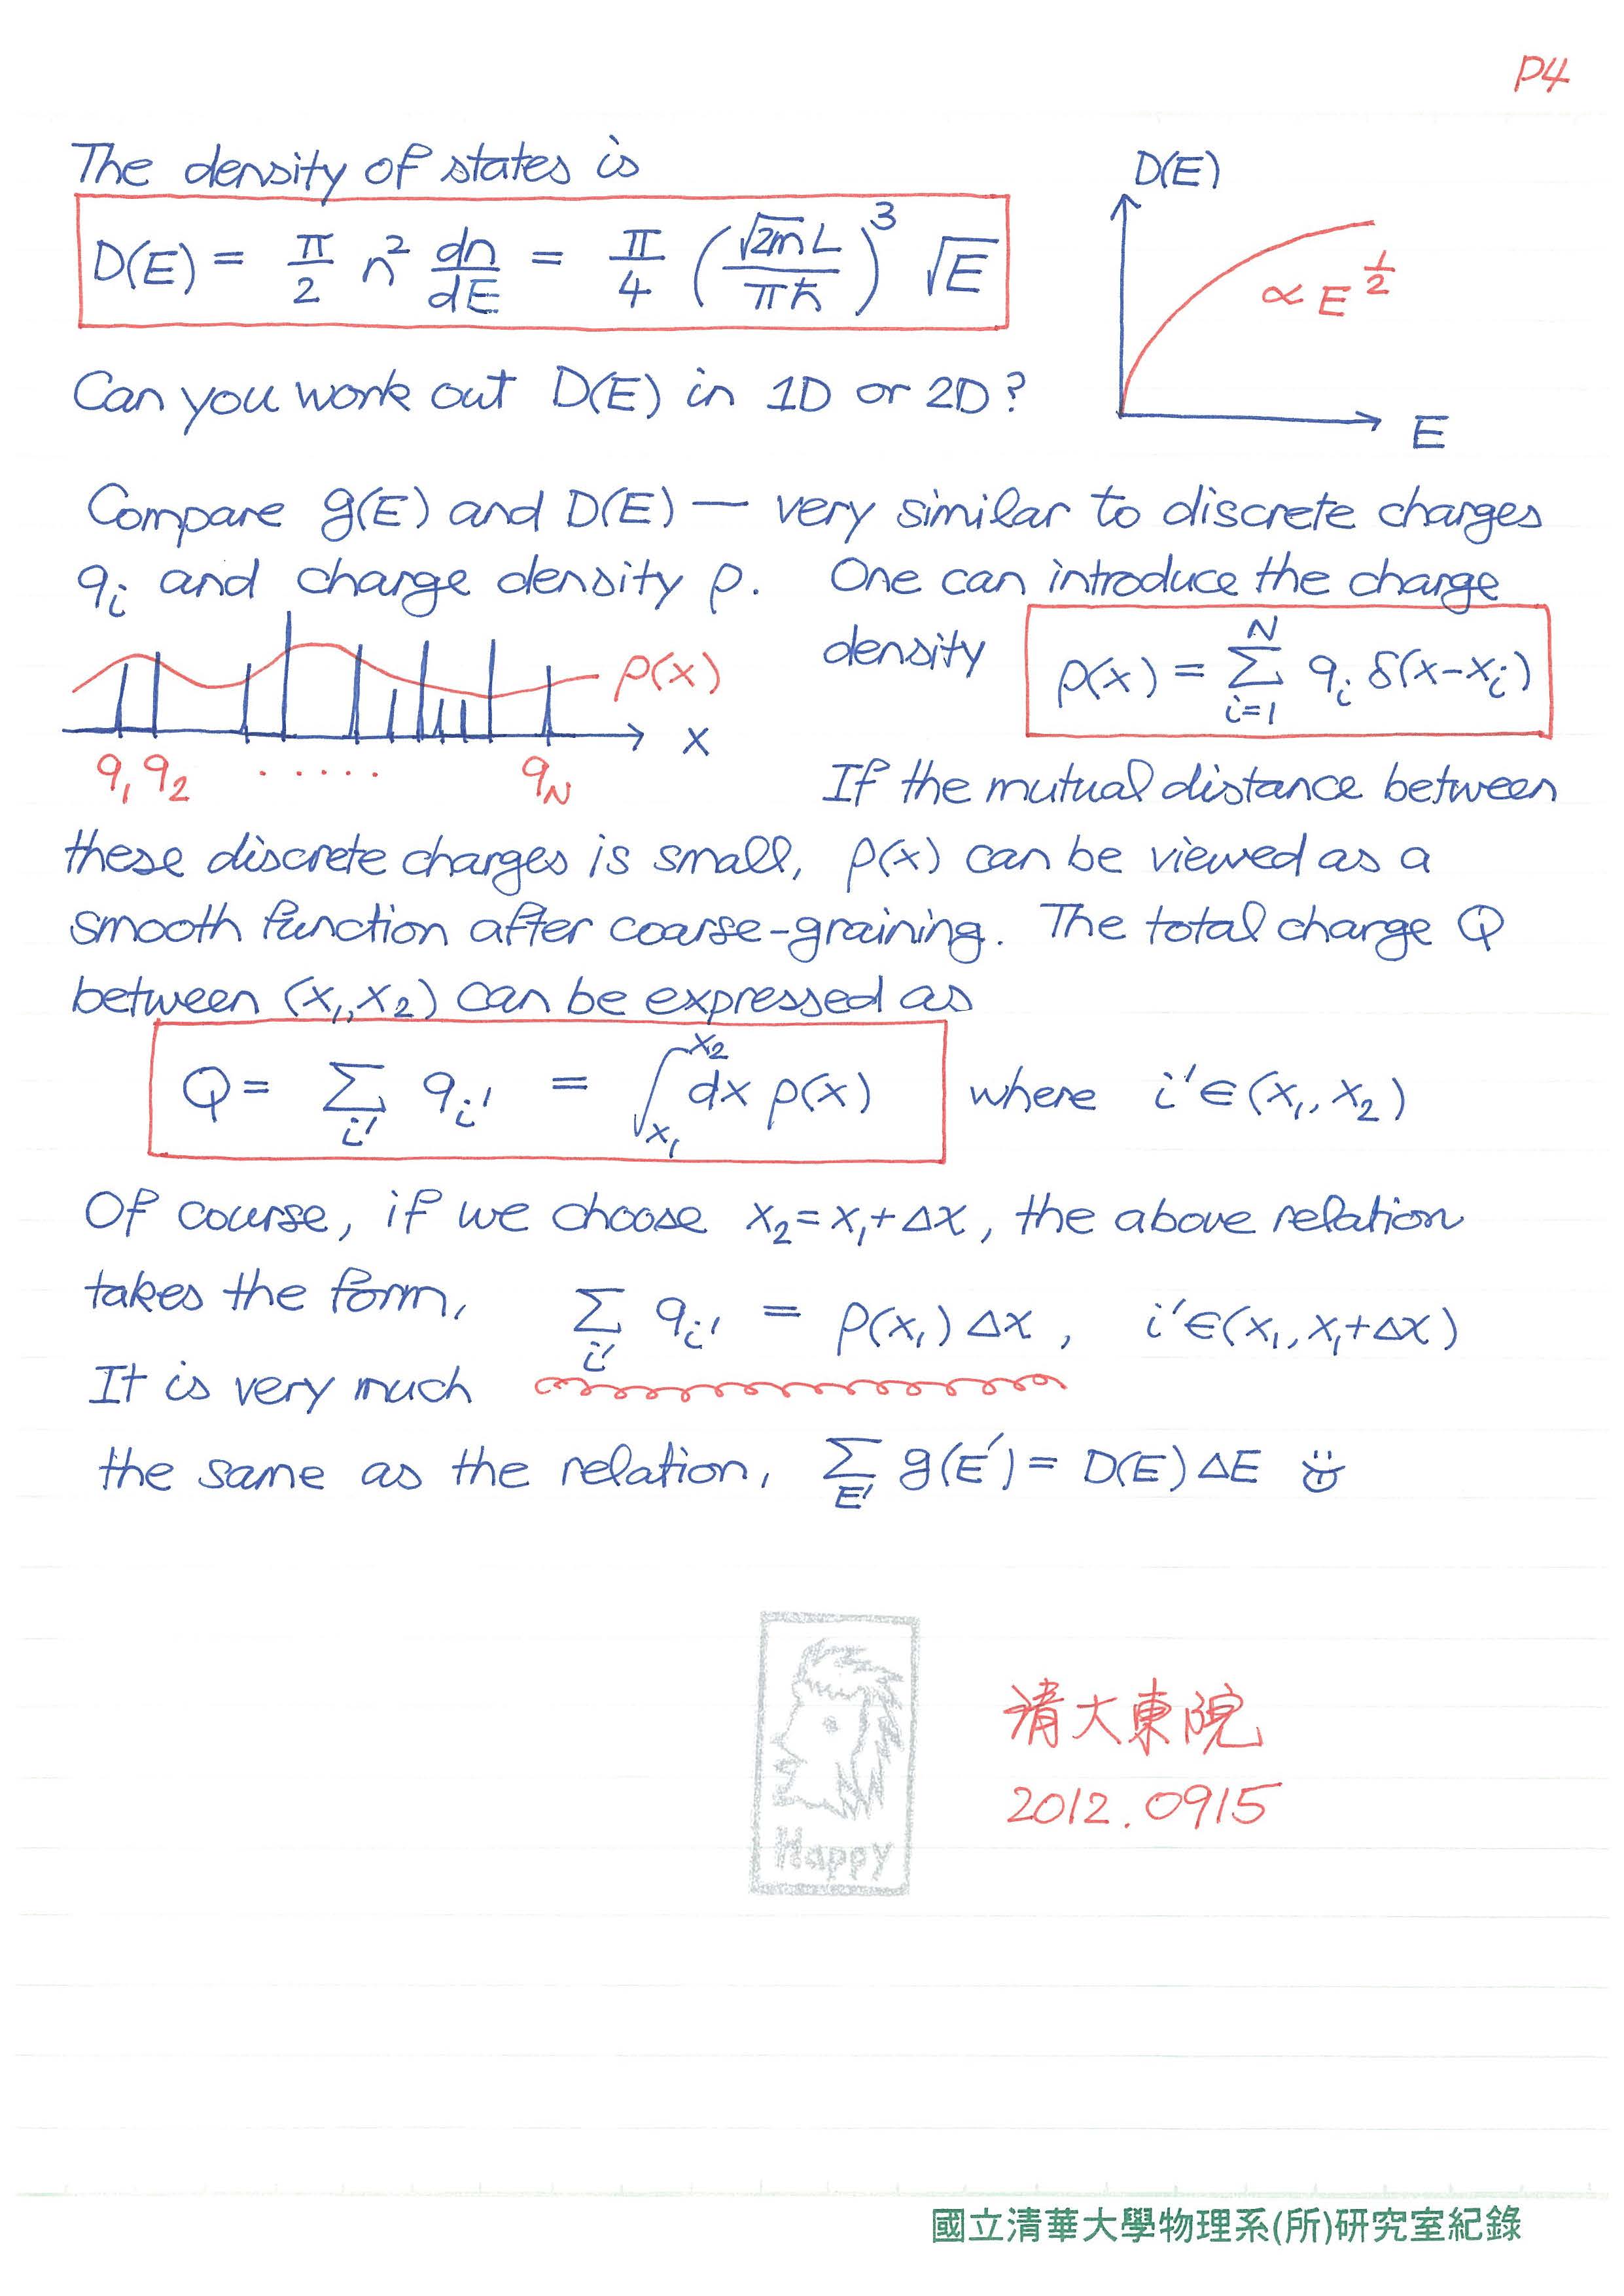 P4
The density of states is
D(E) = π/2 n² dn/dE = π/4 (√2m L/πħ)³ √E
D(E)
∝ E^1/2
E
Can you work out D(E) in 1D or 2D?
Compare g(E) and D(E) — very similar to discrete charges
qᵢ and charge density ρ. One can introduce the charge
density ρ(x) = Σ_{i=1}^{N} qᵢ δ(x-xᵢ)
ρ(x)
x
q₁ q₂ ..... q_N
If the mutual distance between
these discrete charges is small, ρ(x) can be viewed as a
smooth function after coarse-graining. The total charge Q
between (x₁, x₂) can be expressed as
Q = Σ_{i'} q_{i'} = ∫_{x₁}^{x₂} dx ρ(x) where i' ∈ (x₁, x₂)
Of course, if we choose x₂=x₁+Δx, the above relation
takes the form, Σ_{i'} q_{i'} = ρ(x₁) Δx, i' ∈ (x₁, x₁+Δx)
It is very much
the same as the relation, Σ_{E'} g(E') = D(E) ΔE
Happy
清大東院
2012.0915
國立清華大學物理系(所)研究室紀錄